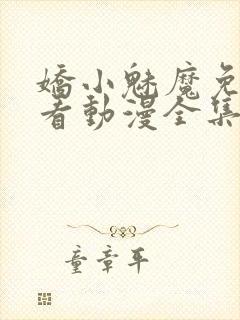 嬌小魅魔免
看動漫全集
童章平